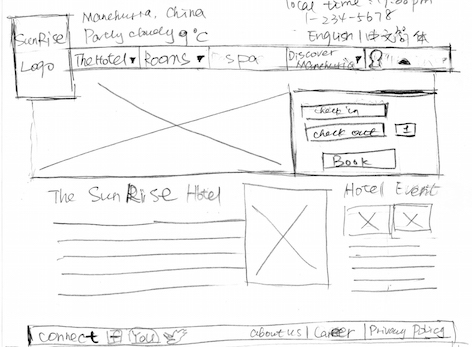 Manchuria, China
Partly cloudy 9°C
local time: 7:00pm
1-234-5678
English | 中文简体
SunRise
Logo
The Hotel ▾
Rooms ▾
spa
Discover
Manchuria ▾
check in
check out
1
Book
The SunRise Hotel
Hotel Event
connect f You
about us | Career | Privacy Policy